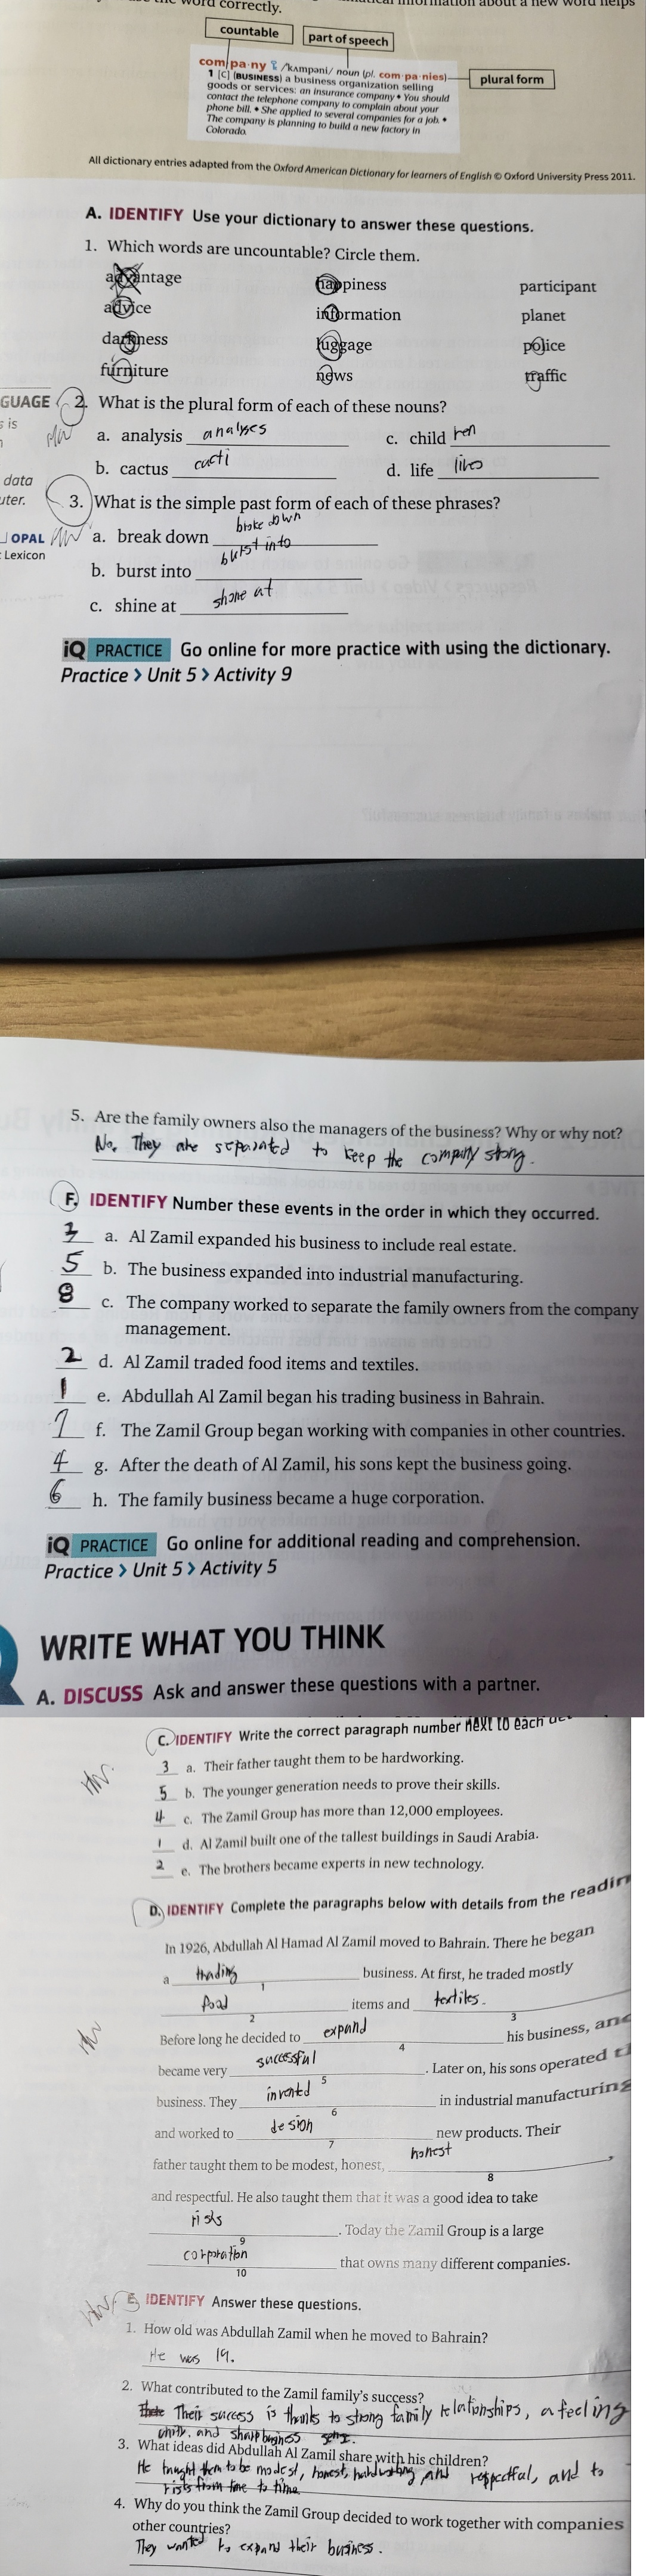 the word correctly.
countable
part of speech
com·pa·ny /ˈkʌmpəni/ noun (pl. com·pa·nies)
plural form
1 [C] (BUSINESS) a business organization selling
goods or services: an insurance company • You should
contact the telephone company to complain about your
phone bill. • She applied to several companies for a job. •
The company is planning to build a new factory in
Colorado.
All dictionary entries adapted from the Oxford American Dictionary for learners of English © Oxford University Press 2011.
A. IDENTIFY Use your dictionary to answer these questions.
1. Which words are uncountable? Circle them.
advantage happiness participant
advice information planet
darkness luggage police
furniture news traffic
GUAGE
2. What is the plural form of each of these nouns?
s is
a. analysis analyses c. child ren
b. cactus cacti d. life lives
data
uter.
3. What is the simple past form of each of these phrases?
OPAL
Lexicon
a. break down broke down
b. burst into burst into
c. shine at shone at
iQ PRACTICE Go online for more practice with using the dictionary.
Practice > Unit 5 > Activity 9
5. Are the family owners also the managers of the business? Why or why not?
No. They are separated to keep the company strong.
F. IDENTIFY Number these events in the order in which they occurred.
3 a. Al Zamil expanded his business to include real estate.
5 b. The business expanded into industrial manufacturing.
8 c. The company worked to separate the family owners from the company
management.
2 d. Al Zamil traded food items and textiles.
1 e. Abdullah Al Zamil began his trading business in Bahrain.
7 f. The Zamil Group began working with companies in other countries.
4 g. After the death of Al Zamil, his sons kept the business going.
6 h. The family business became a huge corporation.
iQ PRACTICE Go online for additional reading and comprehension.
Practice > Unit 5 > Activity 5
WRITE WHAT YOU THINK
A. DISCUSS Ask and answer these questions with a partner.
C. IDENTIFY Write the correct paragraph number next to each
HW
3 a. Their father taught them to be hardworking.
5 b. The younger generation needs to prove their skills.
4 c. The Zamil Group has more than 12,000 employees.
1 d. Al Zamil built one of the tallest buildings in Saudi Arabia.
2 e. The brothers became experts in new technology.
D. IDENTIFY Complete the paragraphs below with details from the readin
In 1926, Abdullah Al Hamad Al Zamil moved to Bahrain. There he began
a trading business. At first, he traded mostly
1
food items and textiles.
2 3
HW
Before long he decided to expand his business, and
4
became very successful . Later on, his sons operated t
5
business. They invented in industrial manufacturing
6
and worked to design new products. Their
7
father taught them to be modest, honest, honest
8
and respectful. He also taught them that it was a good idea to take
risks . Today the Zamil Group is a large
9
corporation that owns many different companies.
10
HW
E. IDENTIFY Answer these questions.
1. How old was Abdullah Zamil when he moved to Bahrain?
He was 19.
2. What contributed to the Zamil family's success?
Their success is thanks to strong family relationships, a feeling
unity, and sharp business sense.
3. What ideas did Abdullah Al Zamil share with his children?
He taught them to be modest, honest, hardworking and respectful, and to
risks from time to time
4. Why do you think the Zamil Group decided to work together with companies
other countries?
They wanted to expand their business.